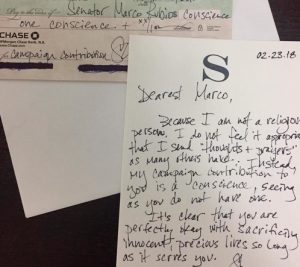 Pay to the order of Senator Marco Rubio's Conscience
one conscience +
CHASE
JPMorgan Chase Bank, N.A.
www.Chase.com
campaign contribution
S
02-23-18
Dearest Marco,
Because I am not a religious
person, I do not feel it appropriate
that I send "thoughts + prayers"
as many others have. Instead,
my campaign contribution to
you is a "conscience", seeing
as you do not have one.
It's clear that you are
perfectly okay with sacrificing
innocent, precious lives so long
as it serves you.